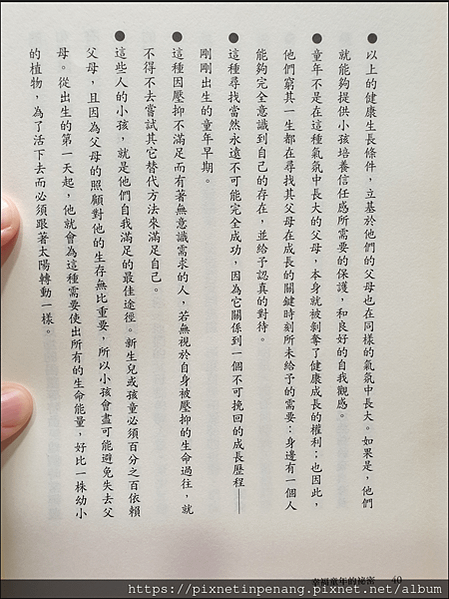 ●以上的健康生長條件，立基於他們的父母也在同樣的氣氛中長大。如果是，他們
就能夠提供小孩培養信任感所需要的保護，和良好的自我觀感。
●童年不是在這種氣氛中長大的父母，本身就被剝奪了健康成長的權利；也因此，
他們窮其一生都在尋找其父母在成長的關鍵時刻所未給予的需要：身邊有一個人
能夠完全意識到自己的存在，並給予認真的對待。
●這種尋找當然永遠不可能完全成功，因為它關係到一個不可挽回的成長歷程——
剛剛出生的童年早期。
●這種因壓抑不滿足而有著無意識需求的人，若無視於自身被壓抑的生命過往，就
不得不去嘗試其它替代方法來滿足自己。
●這些人的小孩，就是他們自我滿足的最佳途徑。新生兒或孩童必須百分之百依賴
父母，且因為父母的照顧對他的生存無比重要，所以小孩會盡可能避免失去父
母。從出生的第一天起，他就會為這種需要使出所有的生命能量，好比一株幼小
的植物，為了活下去而必須跟著太陽轉動一樣。
幸福童年的祕密 40
https://pixnetinpenang.pixnet.net/album